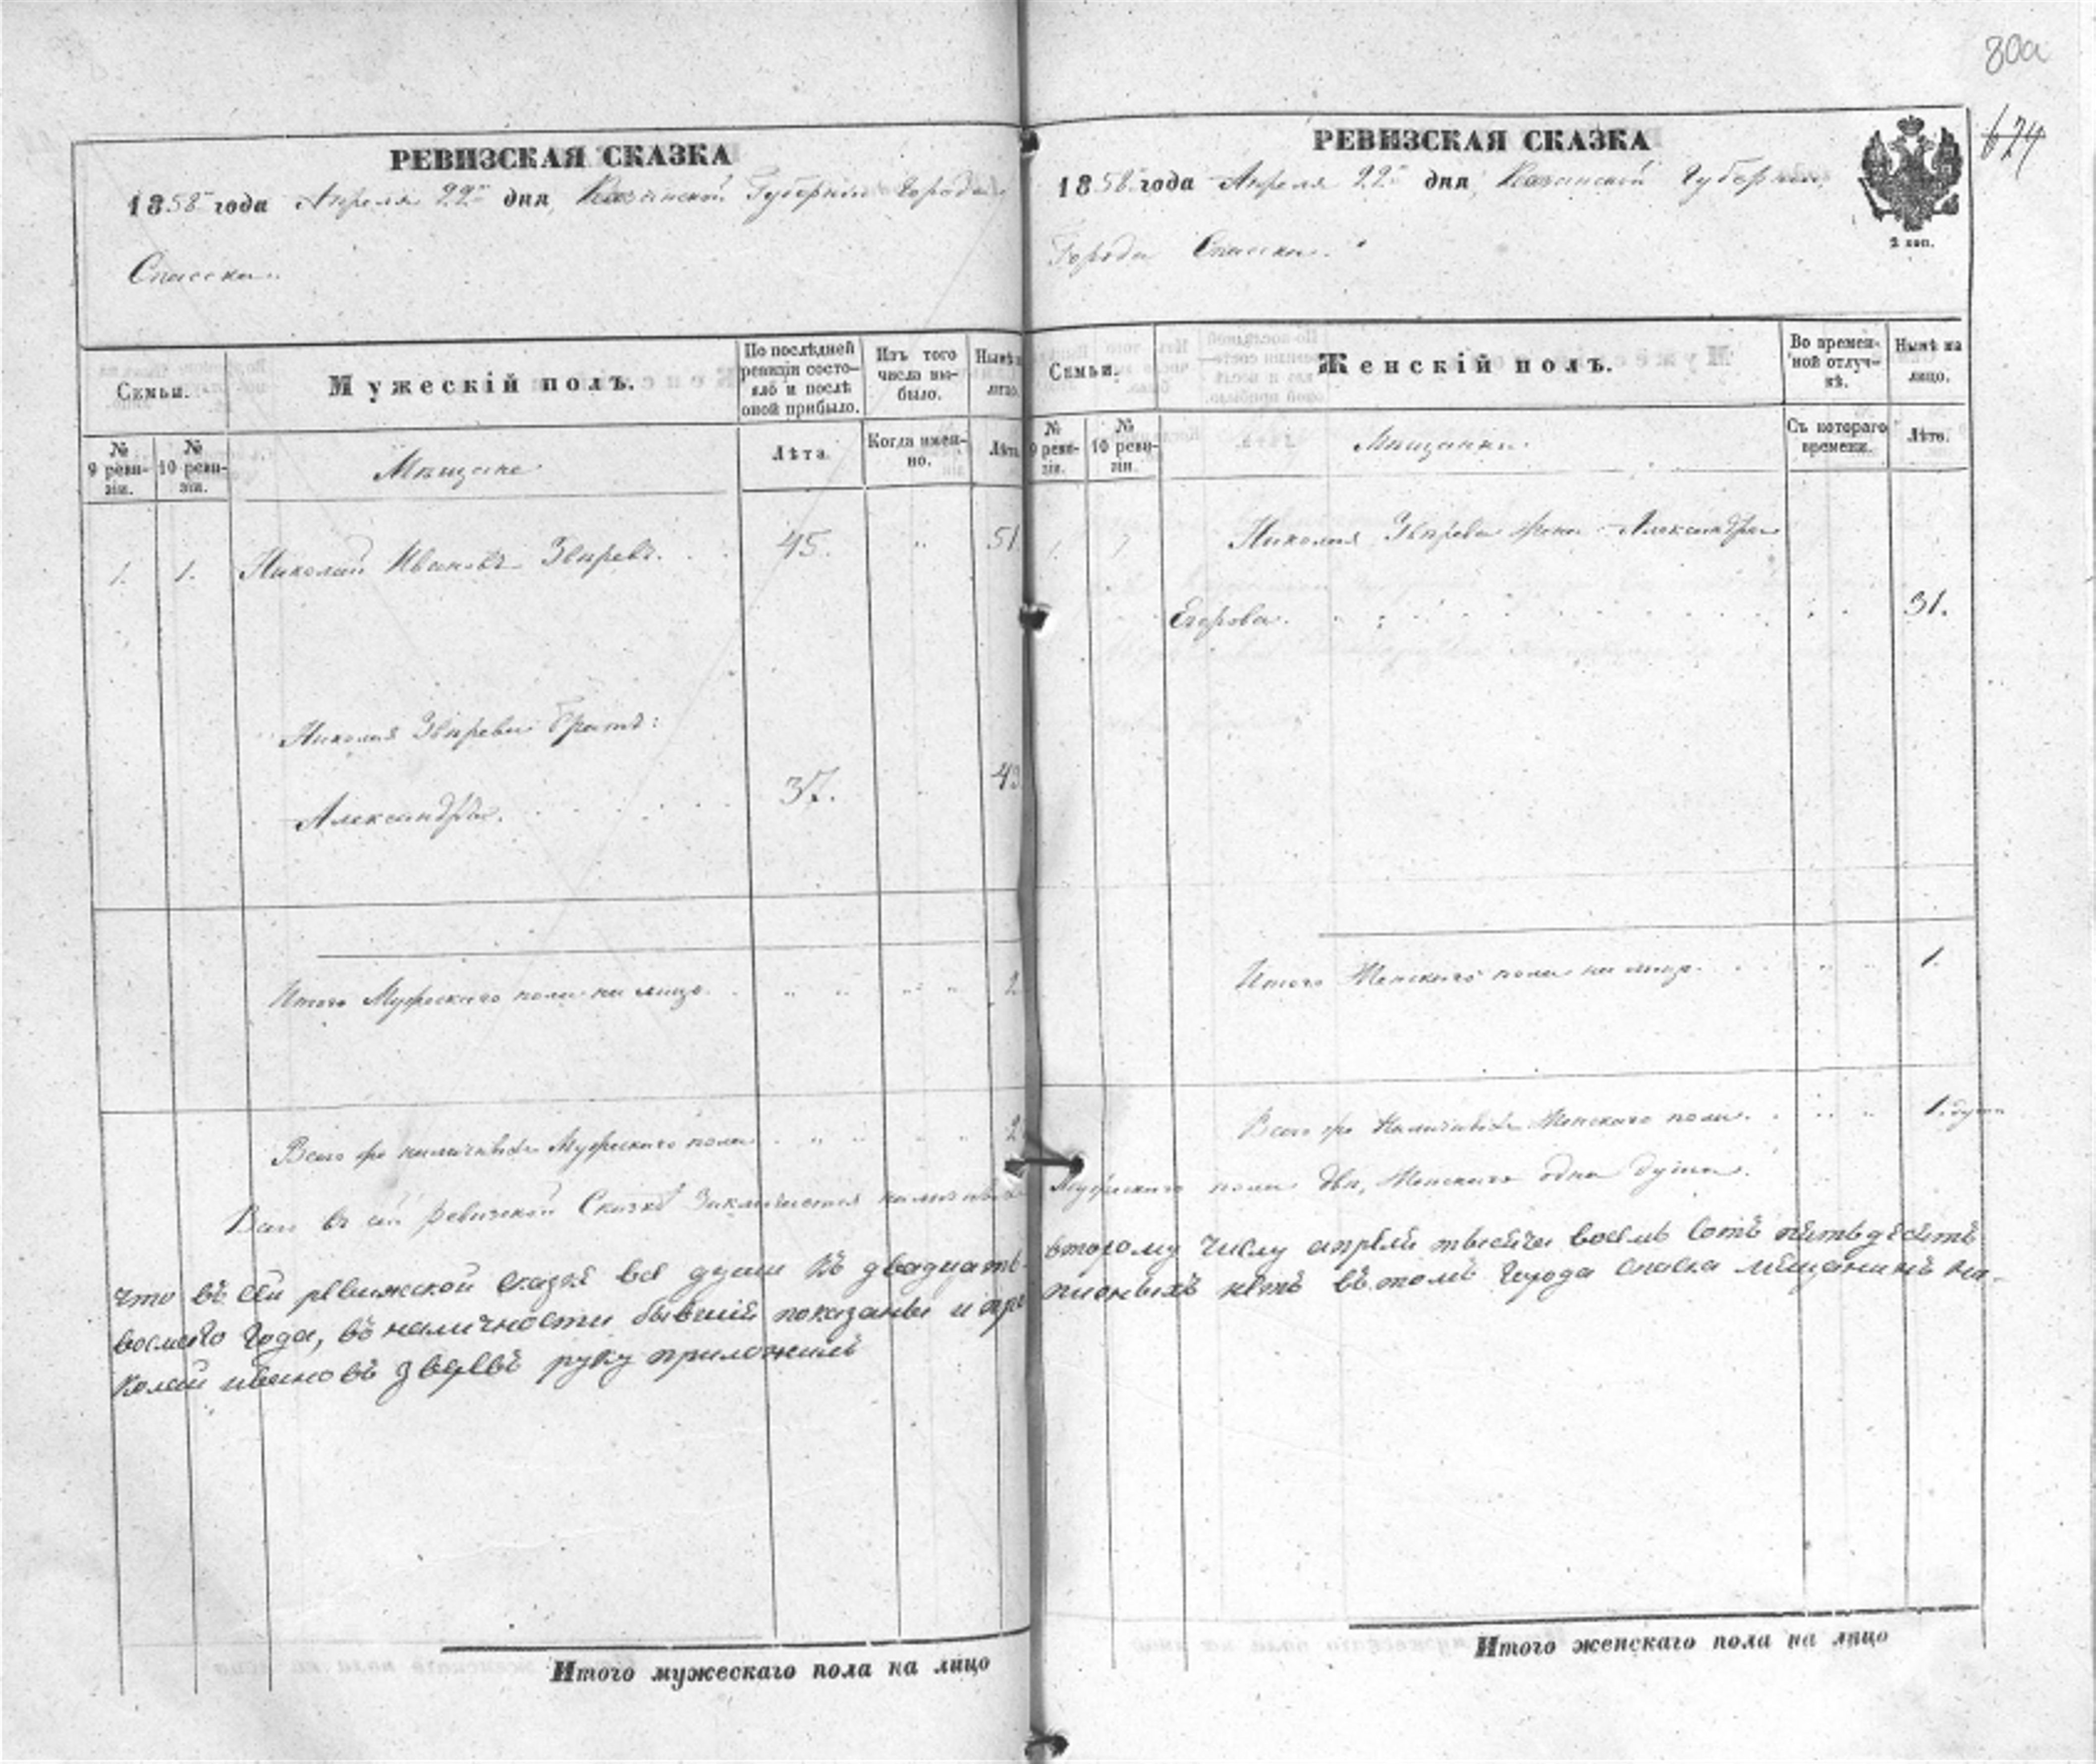 80а
674
РЕВИЗСКАЯ СКАЗКА
1858 года Апреля 22го дня, Казанской Губернии Города
Спасска.
Семьи.
Мужескій полъ.
По послѣдней ревизіи состояло и послѣ оной прибыло.
Изъ того числа выбыло.
Нынѣ на лицо.
№ 9 ревизіи.
№ 10 ревизіи.
Мѣщане
Лѣта.
Когда именно.
Лѣта.
1. 1. Николай Ивановъ Звѣревъ. 45. " 51
Николая Звѣрева братъ:
Александръ. 37. 43
Итого Мужескаго пола на лицо. 2
Всего же наличныхъ Мужескаго пола 2
Всего въ сей ревизской Сказкѣ Заключается наличныхъ
что въ сей ревижской сказкѣ все души къ двадцать
восмаго года, въ наличности бывшие показаны и про
колай ивановъ зверевъ руку приложилъ
Итого мужескаго пола на лицо
РЕВИЗСКАЯ СКАЗКА
1858 года Апреля 22го дня, Казанской Губернии,
Города Спасска.
2 коп.
Семьи.
Женскій полъ.
Во временной отлучкѣ.
Нынѣ на лицо.
№ 9 ревизіи.
№ 10 ревизіи.
Мѣщанки.
Съ котораго времени.
Лѣта.
1. Николая Звѣрева жена Александра
Егорова. 31.
Итого Женскаго пола на лицо. 1.
Всего же Наличныхъ Женскаго пола. 1. душа
Мужескаго пола две, Женскаго одна душа.
второму числу апреля тысяча восемь сотъ пятьдесятъ
писныхъ нетъ въ томъ города спаска мещанинъ ни-
Итого женскаго пола на лицо